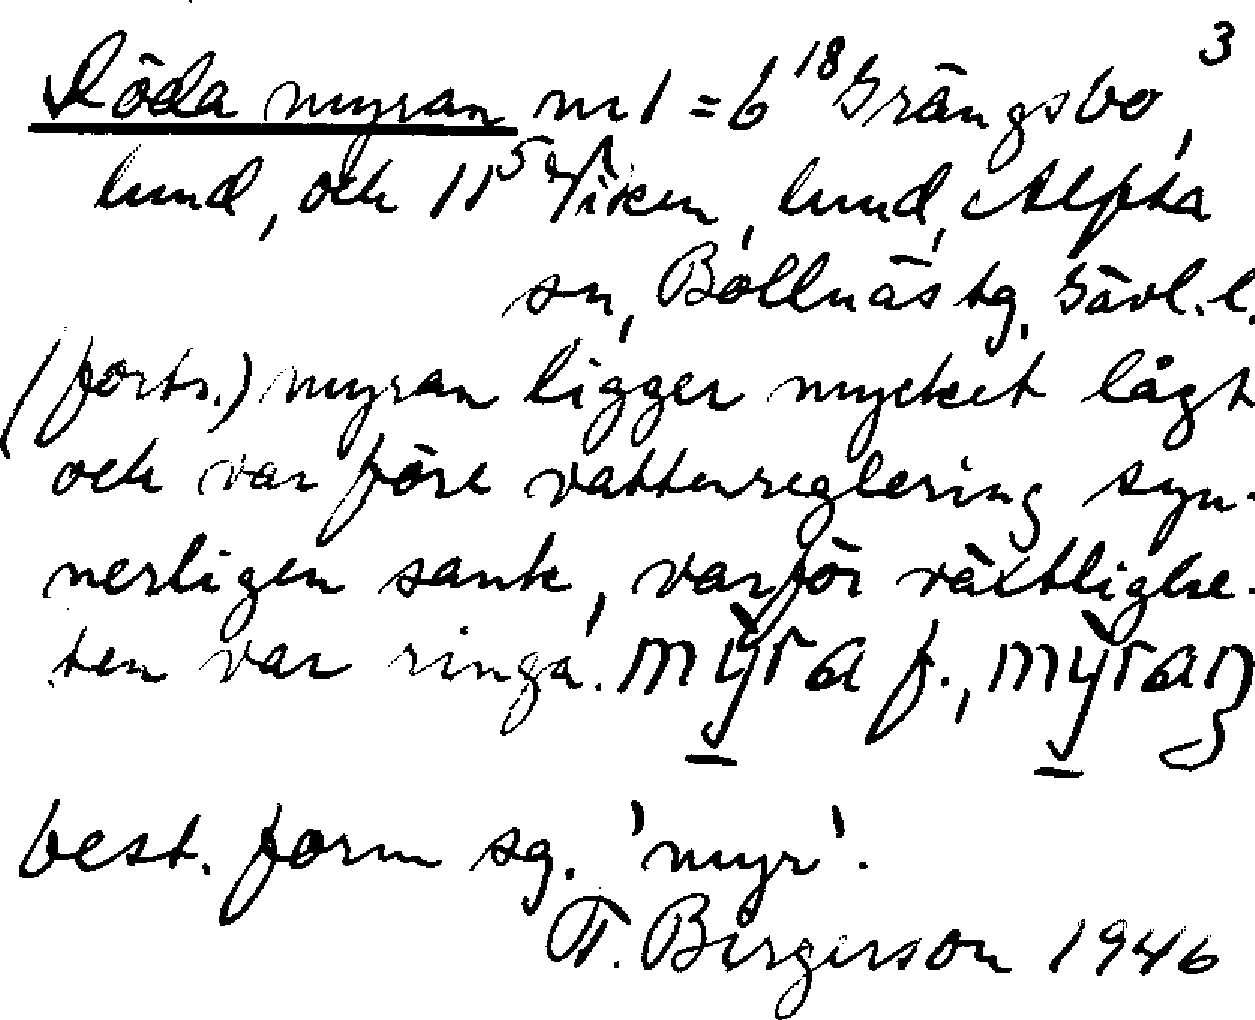 3
Röda myran nr 1 = 6¹⁸ Grängsbo,
lund, och 11⁵ Viken, lund, Alfta
sn, Bollnäs tg, Gävl. l.
(forts.) myran ligger mycket lågt
och var före vattenreglering syn-
nerligen sank, varför växtlighe-
ten var ringa. mỳra f., mỳraŋ
best. form sg. 'myr'.
T. Birgerson 1946